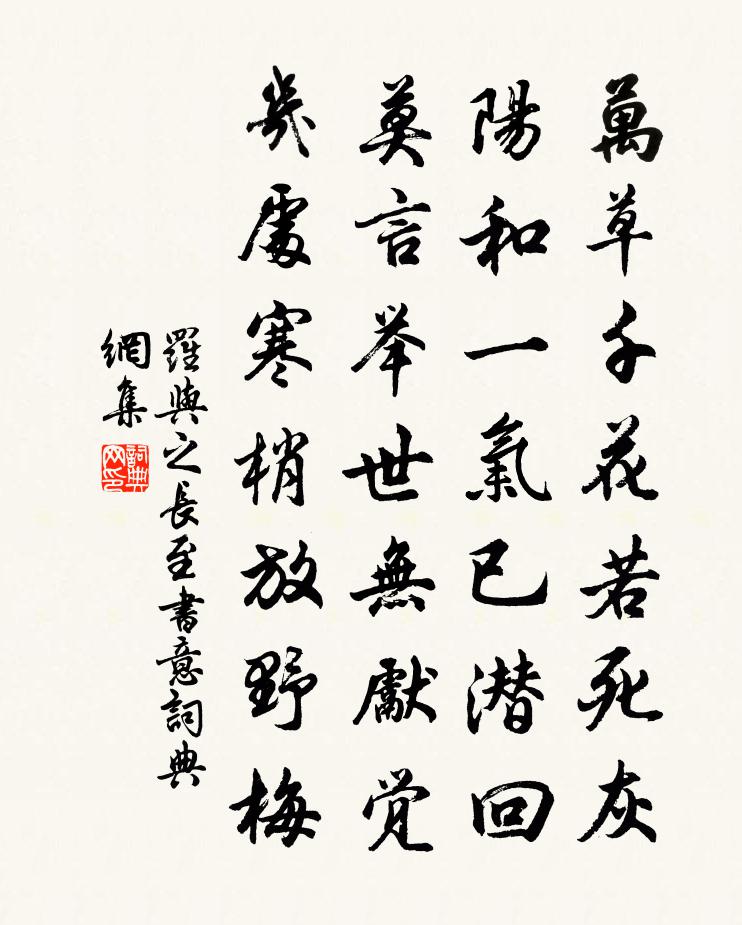 萬草千花若死灰
陽和一氣已潜回
莫言举世無獻覚
幾處寒梢放野梅
羅與之長至書意詞典
網集
詞典網印